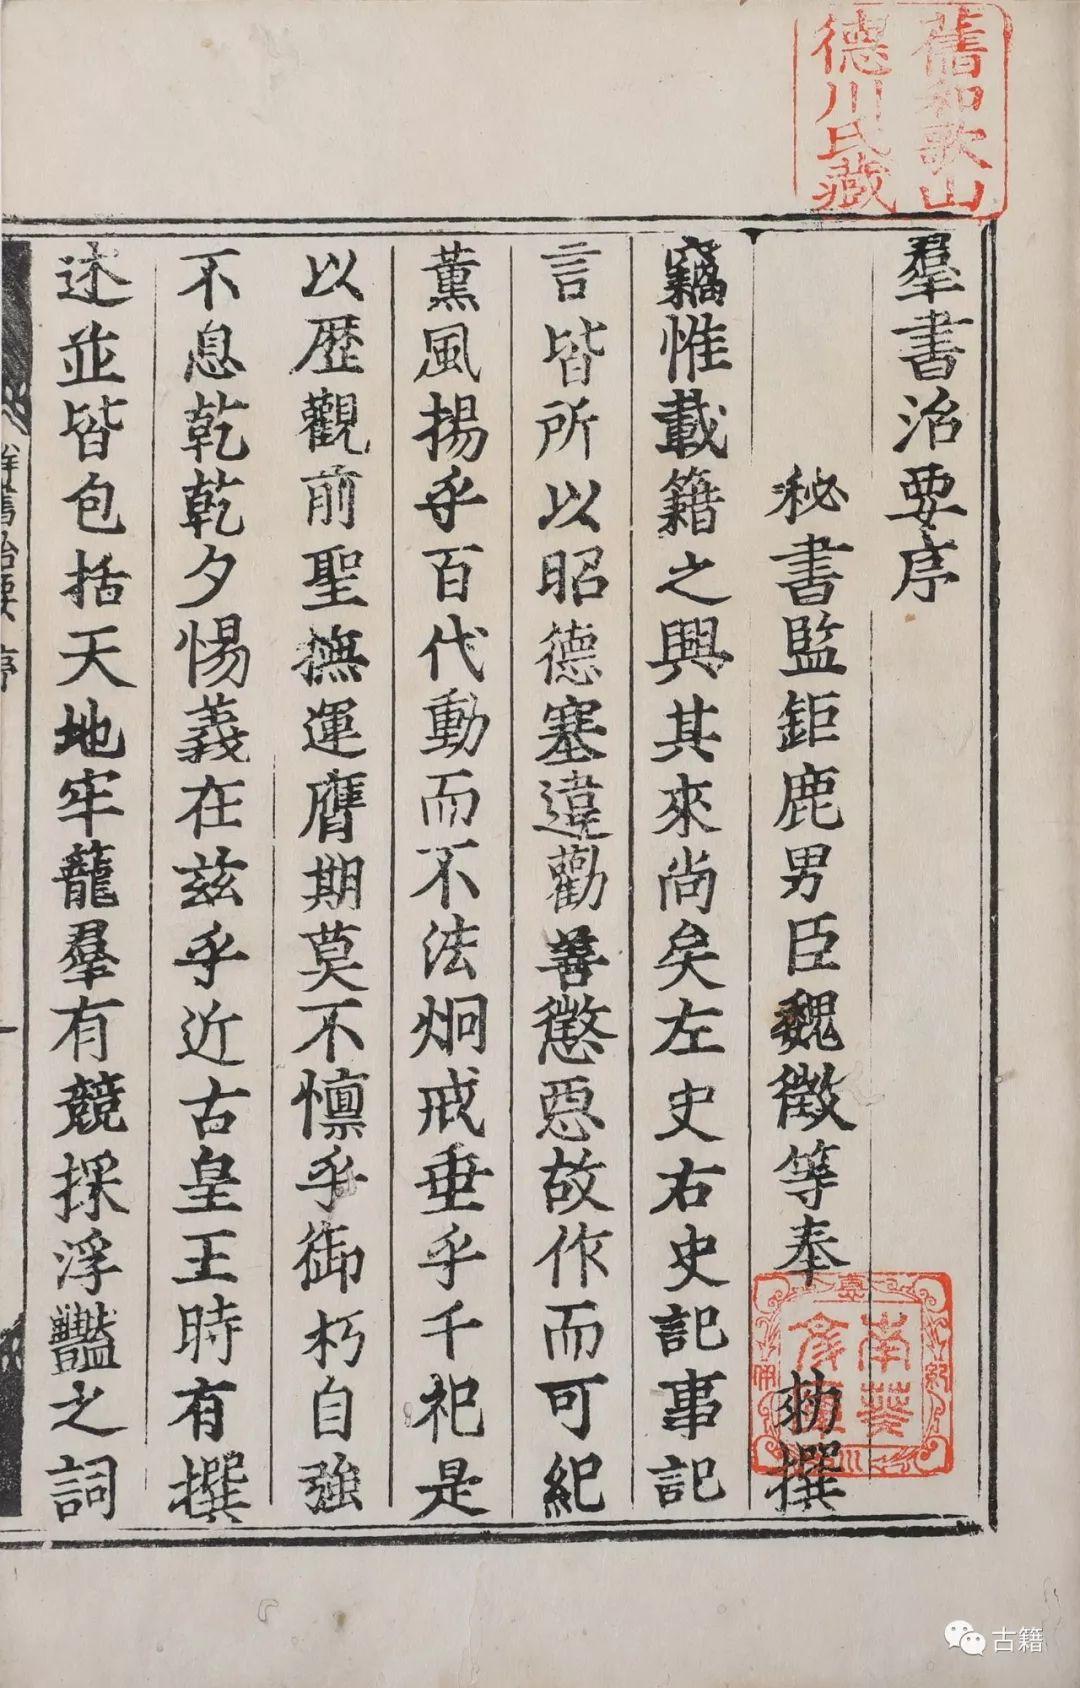 舊和歌山
德川氏藏
羣書治要序
秘書監鉅鹿男臣魏徵等奉 勑撰
竊惟載籍之興其來尚矣左史右史記事記
言皆所以昭德塞違勸善懲惡故作而可紀
薰風揚乎百代動而不法炯戒垂乎千祀是
以歷觀前聖撫運膺期莫不懍乎御朽自強
不息乾乾夕惕義在兹乎近古皇王時有撰
述並皆包括天地牢籠羣有競採浮豔之詞
羣書治要 序
一
南葵
古籍